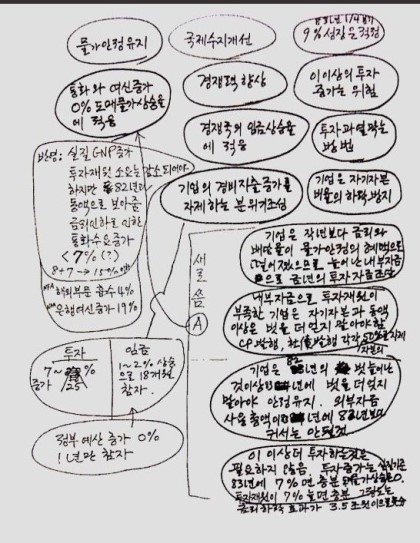 물가안정유지
국제수지개선
83년 1/4분기
9%성장은 적정
통화와 여신증가
0% 도매물가상승율
에 적응
경쟁력 향상
이이상의 투자
증가는 위험
경쟁국의 임금상승율
에 적응
투자과열막는
방법
반영: 실질 GNP증가
투자재원 소요는 감소되어야
하지만 82년과
동액으로 보아줌
금리인하로 인한
통화수요증가
<7% (?)
8+7→15%
해외부문 흡수 4%
은행여신증가 19%
기업의 경비지출증가를
자제하는 분위기조성
기업은 자기자본
비율의 하락방지
말씀
A
기업은 작년보다 금리와
배당율이 물가안정의 혜택으로
떨어졌으므로 늘어난 내부자금
으로 금년의 투자자금조달
내부자금으로 투자재원이
부족한 기업은 자기자본과 동액
이상은 빚을 더 얻지 말아야 함
CP발행, 사채발행 각각 50%을 자제
투자
7~ %
증가
25
임금
1~2% 상승
으로 18개월
참자
기업은 82년의 빚 늘어난
것이상 년에 빚을 더 얻지
말아야 안정유지. 외부자금
사용 총액이 년에 82년보다
커서는 안될것
정부예산 증가 0%
1년만 참자
이 이상 더 투자하는것은
필요하지 않음. 투자증가는
83년에 7%면 충분
투자재원이 7% 늘면 충분
금리하락 효과가 3.5조원이므로